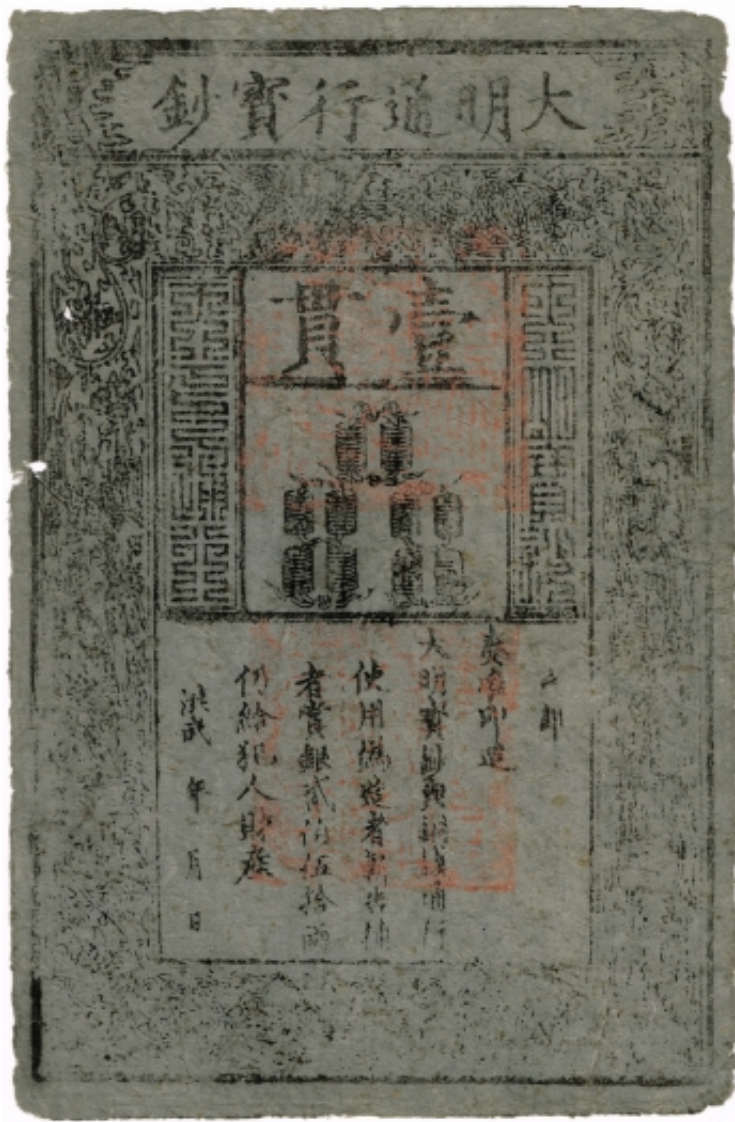 大明通行寶鈔
壹貫
大明寶鈔
天下通行
部
奏准印造
大明寶鈔與銅錢通行
使用偽造者斬告捕
者賞銀貳伯伍拾兩
仍給犯人財產
洪武 年 月 日